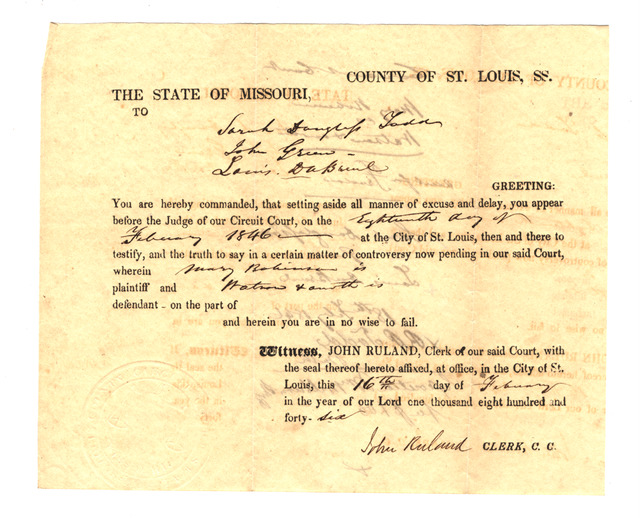 COUNTY OF ST. LOUIS, SS.
THE STATE OF MISSOURI,
TO
Sarah Douglass Todd
John Green
Louis DuBreuil
GREETING:
You are hereby commanded, that setting aside all manner of excuse and delay, you appear
before the Judge of our Circuit Court, on the Eighteenth day of
February 1846 at the City of St. Louis, then and there to
testify, and the truth to say in a certain matter of controversy now pending in our said Court,
wherein Mary Robinson is
plaintiff and Watson & anoth is
defendant - on the part of
and herein you are in no wise to fail.
Witness, JOHN RULAND, Clerk of our said Court, with
the seal thereof hereto affixed, at office, in the City of St.
Louis, this 16th day of February
in the year of our Lord one thousand eight hundred and
forty-six
John Ruland CLERK, C. C.